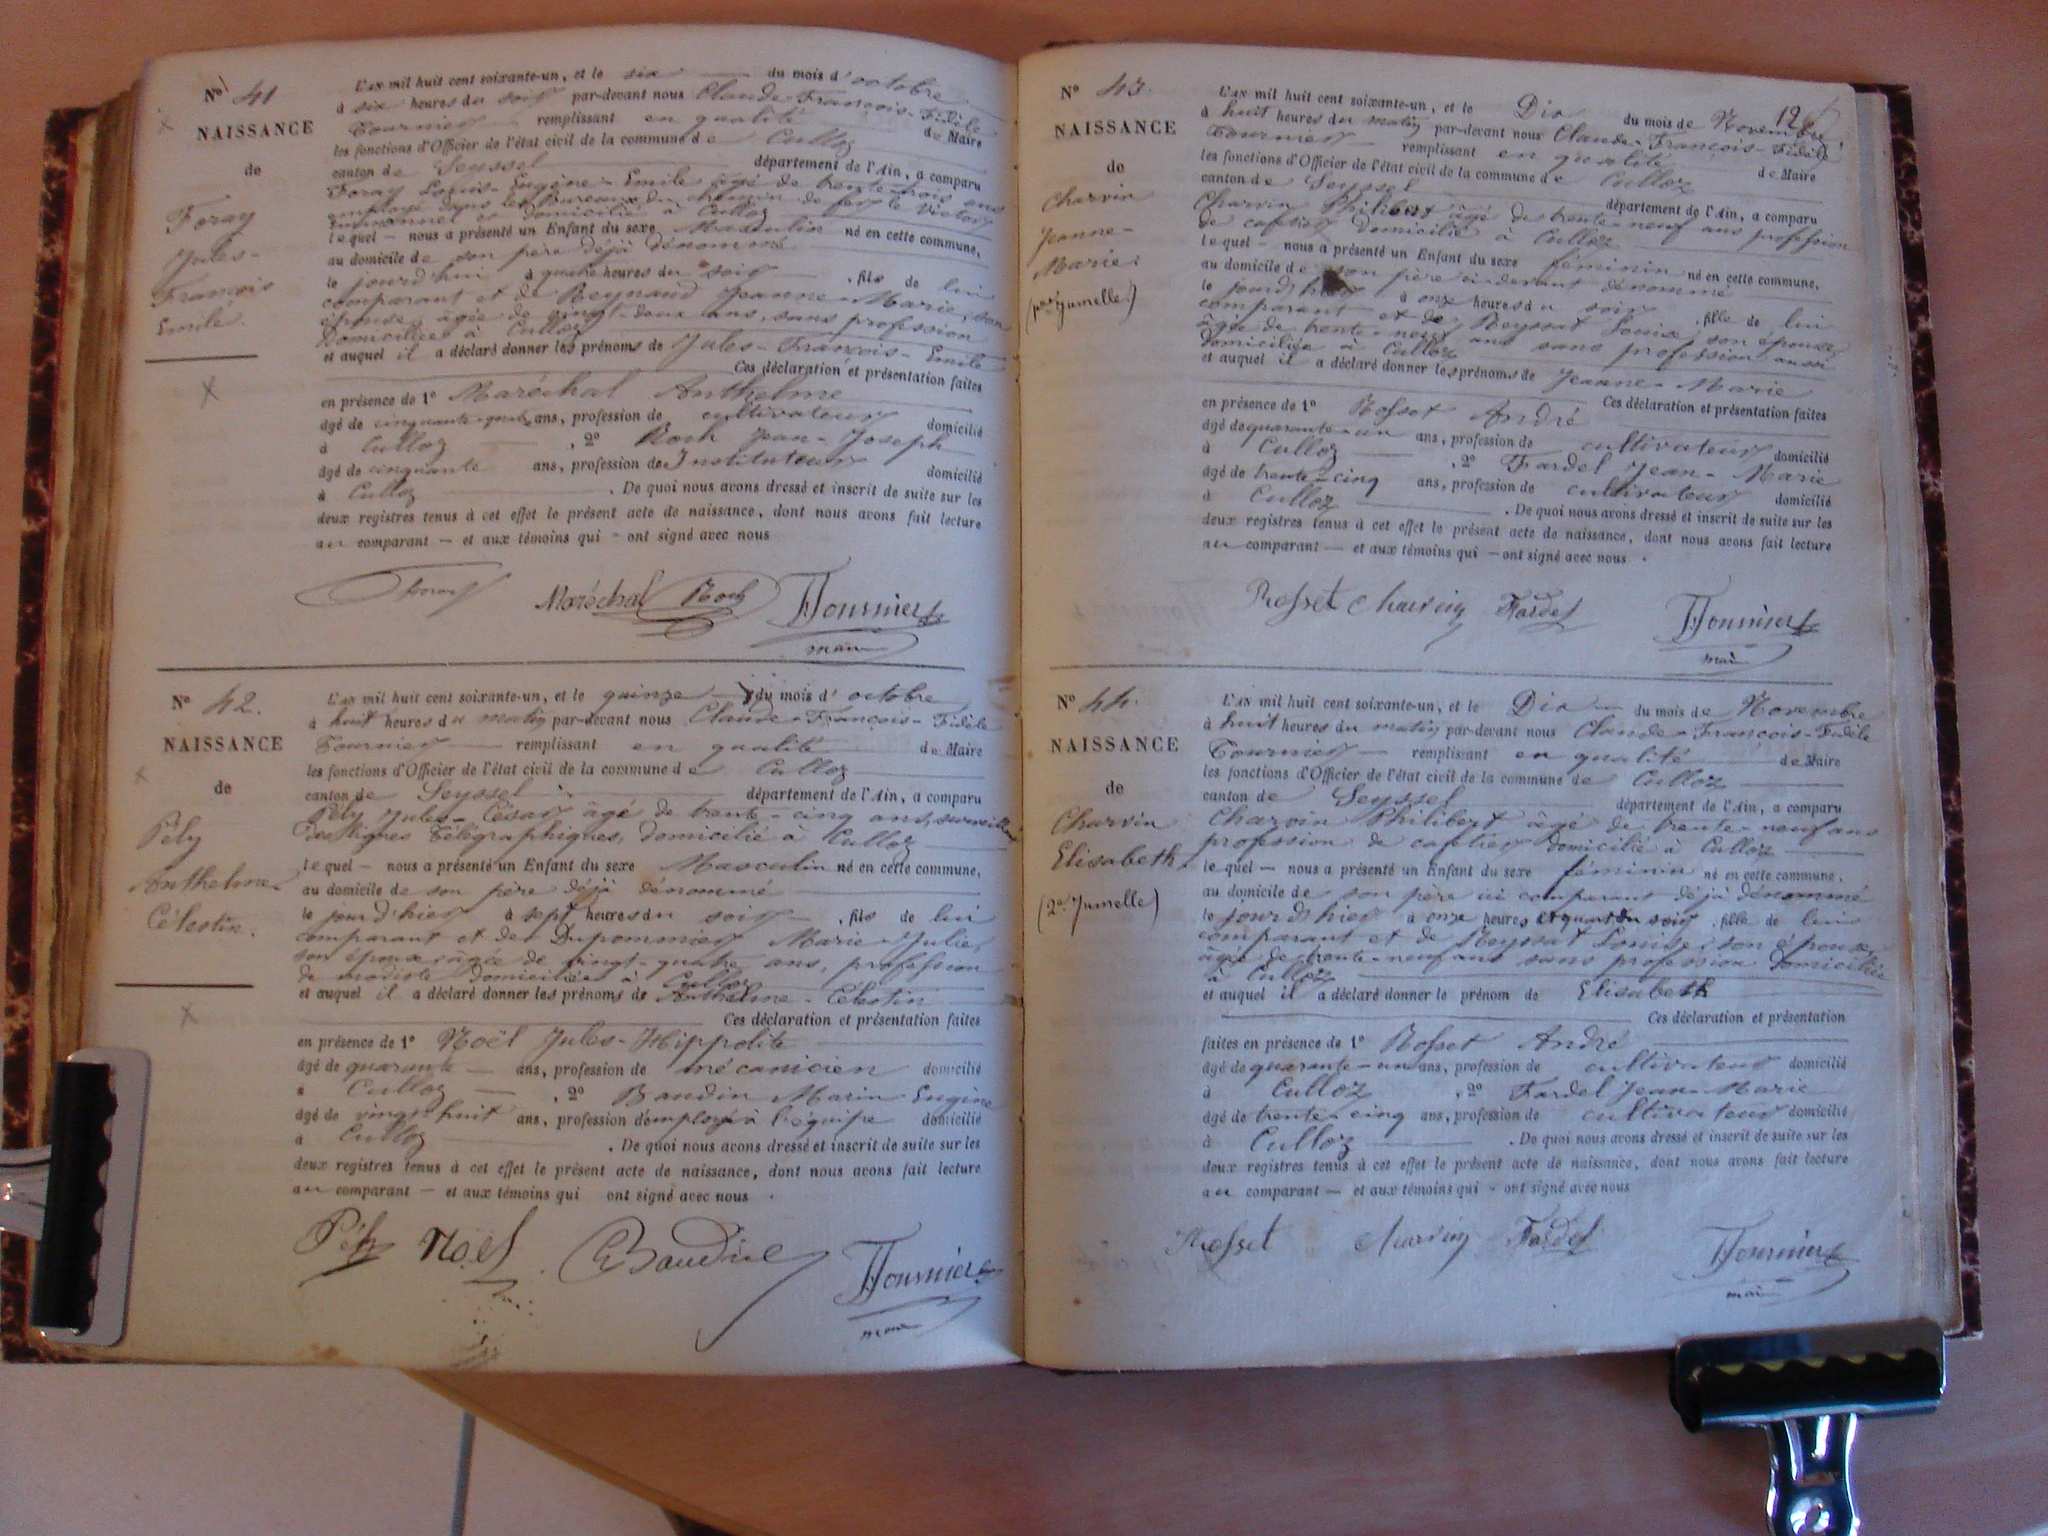 No 41
NAISSANCE
de
Foray
Jules-
François
Emile.
L'AN mil huit cent soixante-un, et le six du mois d'octobre
à six heures du soir par-devant nous Claude-François-Fidèle
Fournier remplissant en qualité de Maire
les fonctions d'Officier de l'état civil de la commune de Culloz
canton de Seyssel département de l'Ain, a comparu
Foray Louis-Eugène-Emile âgé de trente-trois ans
employé dans les Bureaux du chemin de fer le Victor
Emmanuel et domicilié à Culloz
lequel nous a présenté un Enfant du sexe Masculin né en cette commune,
au domicile de son père déjà dénommé
le jourd'hui à quatre heures du soir, fils de lui
comparant et de Reynaud Jeanne-Marie, son
épouse, âgée de vingt-deux ans, sans profession
Domiciliée à Culloz
et auquel il a déclaré donner les prénoms de Jules-François-Emile
Ces déclaration et présentation faites
en présence de 1º Maréchal Anthelme
âgé de cinquante-quatre ans, profession de cultivateur domicilié
à Culloz, 2º Roch Jean-Joseph
âgé de cinquante ans, profession de Instituteur domicilié
à Culloz. De quoi nous avons dressé et inscrit de suite sur les
deux registres tenus à cet effet le présent acte de naissance, dont nous avons fait lecture
au comparant — et aux témoins qui - ont signé avec nous
Foray Maréchal Roch F Fournier
maire
No 42.
NAISSANCE
de
Pély
Anthelme-
Célestin.
L'AN mil huit cent soixante-un, et le quinze du mois d'octobre
à huit heures du matin par-devant nous Claude-François-Fidèle
Fournier remplissant en qualité de Maire
les fonctions d'Officier de l'état civil de la commune de Culloz
canton de Seyssel département de l'Ain, a comparu
Pély Jules-César âgé de trente-cinq ans, surveillant
des lignes télégraphiques, domicilié à Culloz
lequel — nous a présenté un Enfant du sexe Masculin né en cette commune,
au domicile de son père déjà dénommé
le jour d'hier à sept heures du soir, fils de lui
comparant et de Dupommier Marie-Julie,
son épouse âgée de vingt-quatre ans, profession
de modiste domiciliée à Culloz
et auquel il a déclaré donner les prénoms de Anthelme-Célestin
Ces déclaration et présentation faites
en présence de 1º Noël Jules-Hippolite
âgé de quarante ans, profession de mécanicien domicilié
à Culloz, 2º Baudin Marin Eugène
âgé de vingt huit ans, profession d'employé à l'équipe domicilié
à Culloz. De quoi nous avons dressé et inscrit de suite sur les
deux registres tenus à cet effet le présent acte de naissance, dont nous avons fait lecture
au comparant — et aux témoins qui ont signé avec nous.
Pély Noël Baudin F Fournier
maire
12
No 43.
NAISSANCE
de
Charvin
Jeanne-
Marie.
(1ère Jumelle)
L'AN mil huit cent soixante-un, et le Dix du mois de Novembre
à huit heures du matin par-devant nous Claude-François-Fidèle
Fournier remplissant en qualité de Maire
les fonctions d'Officier de l'état civil de la commune de Culloz
canton de Seyssel département de l'Ain, a comparu
Charvin Philibert âgé de trente-neuf ans profession
de cafetier domicilié à Culloz
lequel — nous a présenté un Enfant du sexe féminin né en cette commune,
au domicile de son père ci-devant dénommé
le jourd'hier à onze heures du soir, fille de lui
comparant et de Reyssat Louise, son épouse,
âgée de trente-neuf ans sans profession aussi
domiciliée à Culloz
et auquel il a déclaré donner les prénoms de Jeanne-Marie
Ces déclaration et présentation faites
en présence de 1º Rosset André
âgé de quarante-un ans, profession de cultivateur domicilié
à Culloz, 2º Fardel Jean-Marie
âgé de trente-cinq ans, profession de cultivateur domicilié
à Culloz. De quoi nous avons dressé et inscrit de suite sur les
deux registres tenus à cet effet le présent acte de naissance, dont nous avons fait lecture
au comparant — et aux témoins qui — ont signé avec nous.
Rosset Charvin Fardel F Fournier
maire
No 44.
NAISSANCE
de
Charvin
Elisabeth.
(2e Jumelle)
L'AN mil huit cent soixante-un, et le Dix du mois de Novembre
à huit heures du matin par-devant nous Claude-François-Fidèle
Fournier remplissant en qualité de Maire
les fonctions d'Officier de l'état civil de la commune de Culloz
canton de Seyssel département de l'Ain, a comparu
Charvin Philibert âgé de trente-neuf ans
profession de cafetier domicilié à Culloz
lequel — nous a présenté un Enfant du sexe féminin né en cette commune,
au domicile de son père ici comparant déjà dénommé
le jourd'hier à onze heures et quart du soir, fille de lui
comparant et de Reyssat Louise, son épouse,
âgée de trente-neuf ans sans profession domiciliée
à Culloz
et auquel il a déclaré donner le prénom de Elisabeth
Ces déclaration et présentation
faites en présence de 1º Rosset André
âgé de quarante-un ans, profession de cultivateur domicilié
à Culloz, 2º Fardel Jean-Marie
âgé de trente-cinq ans, profession de cultivateur domicilié
à Culloz. De quoi nous avons dressé et inscrit de suite sur les
deux registres tenus à cet effet le présent acte de naissance, dont nous avons fait lecture
au comparant — et aux témoins qui - ont signé avec nous
Rosset Charvin Fardel F Fournier
maire